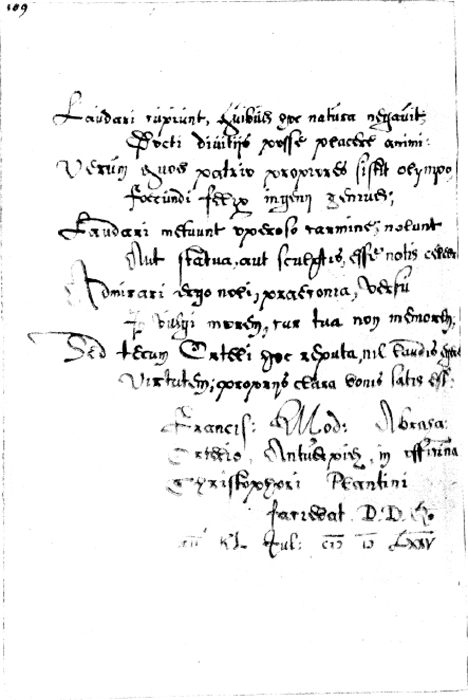 109
Laudari cupiunt, quibus hoc natura negavit
Docti divitijs posse placere animi:
Verum quos patrio propiores sistit olympo
Facundi felix ingenij genius;
Laudari metuunt operoso carmine; nolunt
Aut statua, aut sculptis, esse notis celebres
Admirari ergo noli, praeconia, versu
vulgi morem, cur tua non memorem;
Sed tecum Orteli hoc reputa, nil laudis egere
Virtutem; proprijs clara bonis satis est:
Francis: Mod: Abraha:
Ortelio, Antverpiae, in officina
Christophori Plantini
faciebat. D. D. Q.
KL Jul: CIↃ IↃ LXXIV